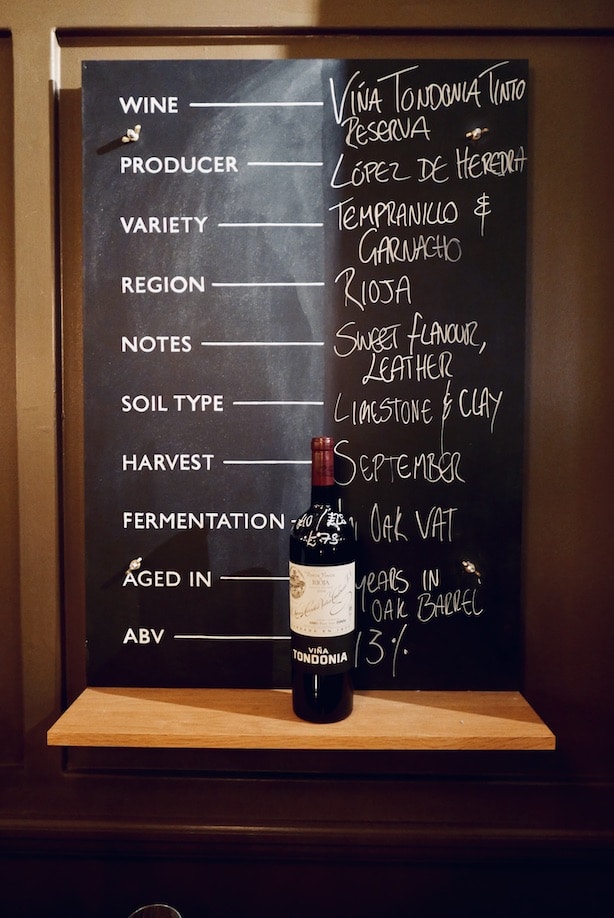 WINE VIÑA TONDONIA TINTO
RESERVA
PRODUCER LÓPEZ DE HEREDRA
VARIETY TEMPRANILLO &
GARNACHO
REGION RIOJA
NOTES SWEET flAVOUR,
LEATHER
SOIL TYPE LIMESTONE & CLAY
HARVEST SEPTEMBER
FERMENTATION OAK VAT
AGED IN YEARS IN
OAK BARREL
ABV 13%
RIOJA
VIÑA
TONDONIA